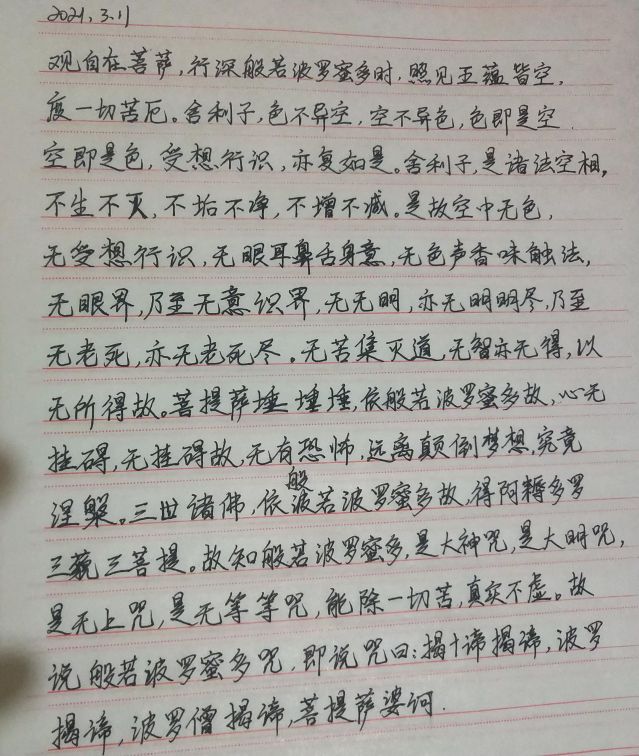 2021.3.11
观自在菩萨,行深般若波罗蜜多时,照见五蕴皆空,
度一切苦厄。舍利子,色不异空,空不异色,色即是空.
空即是色,受想行识,亦复如是。舍利子,是诸法空相,
不生不灭,不垢不净,不增不减。是故空中无色,
无受想行识,无眼耳鼻舌身意,无色声香味触法,
无眼界,乃至无意识界,无无明,亦无明明尽,乃至
无老死,亦无老死尽。无苦集灭道,无智亦无得,以
无所得故。菩提萨埵埵埵,依般若波罗蜜多故,心无
挂碍,无挂碍故,无有恐怖,远离颠倒梦想,究竟
涅槃。三世诸佛,依般波若波罗蜜多故,得阿耨多罗
三藐三菩提。故知般若波罗蜜多,是大神咒,是大明咒,
是无上咒,是无等等咒,能除一切苦,真实不虚。故
说般若波罗蜜多咒,即说咒曰:揭谛揭谛,波罗
揭谛,波罗僧揭谛,菩提萨婆诃.